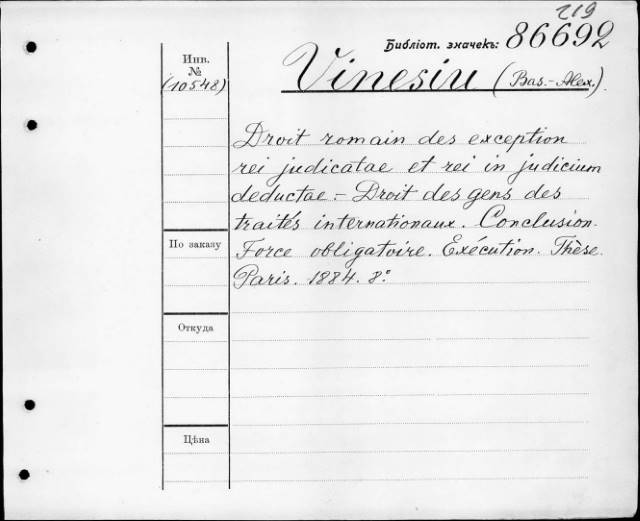 219
Библіот. значекъ: 86692
Инв.
№
(10548)
Vinesiu (Bas.-Alex.)
Droit romain des exception
rei judicatae et rei in judicium
deductae. - Droit des gens des
traités internationaux. Conclusion.
По заказу
Force obligatoire. Exécution. Thèse.
Paris. 1884. 8°.
Откуда
Цѣна